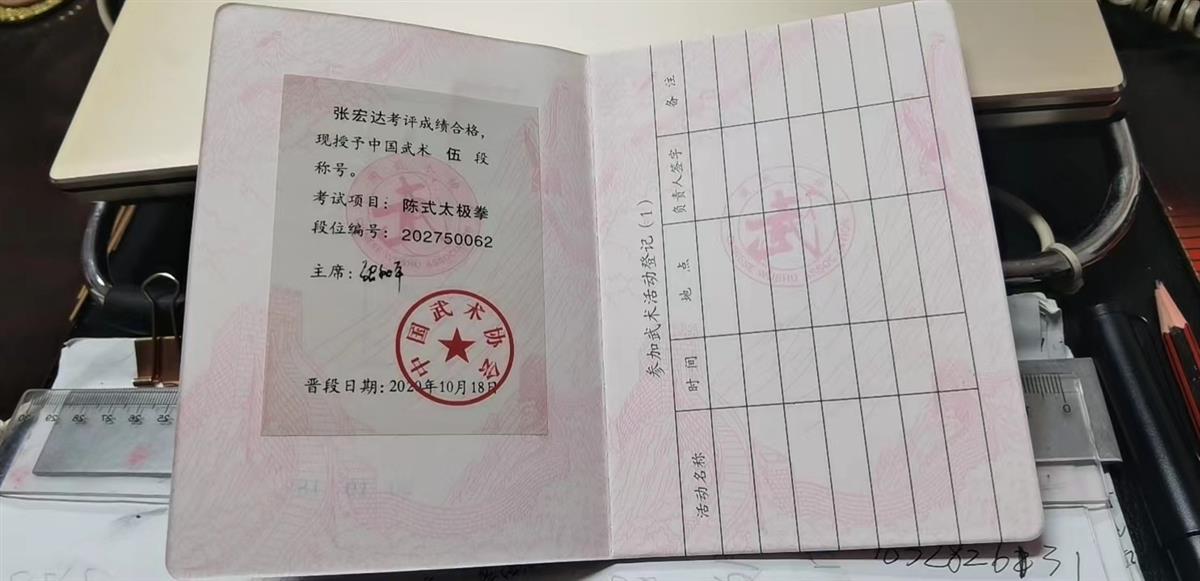 张宏达考评成绩合格，
现授予中国武术 伍 段
称号。
考试项目：陈式太极拳
段位编号：202750062
主席：
中国武术协会
晋段日期：2020年10月18日
参加武术活动登记（1）
活动名称
时 间
地 点
负责人签字
备 注
武